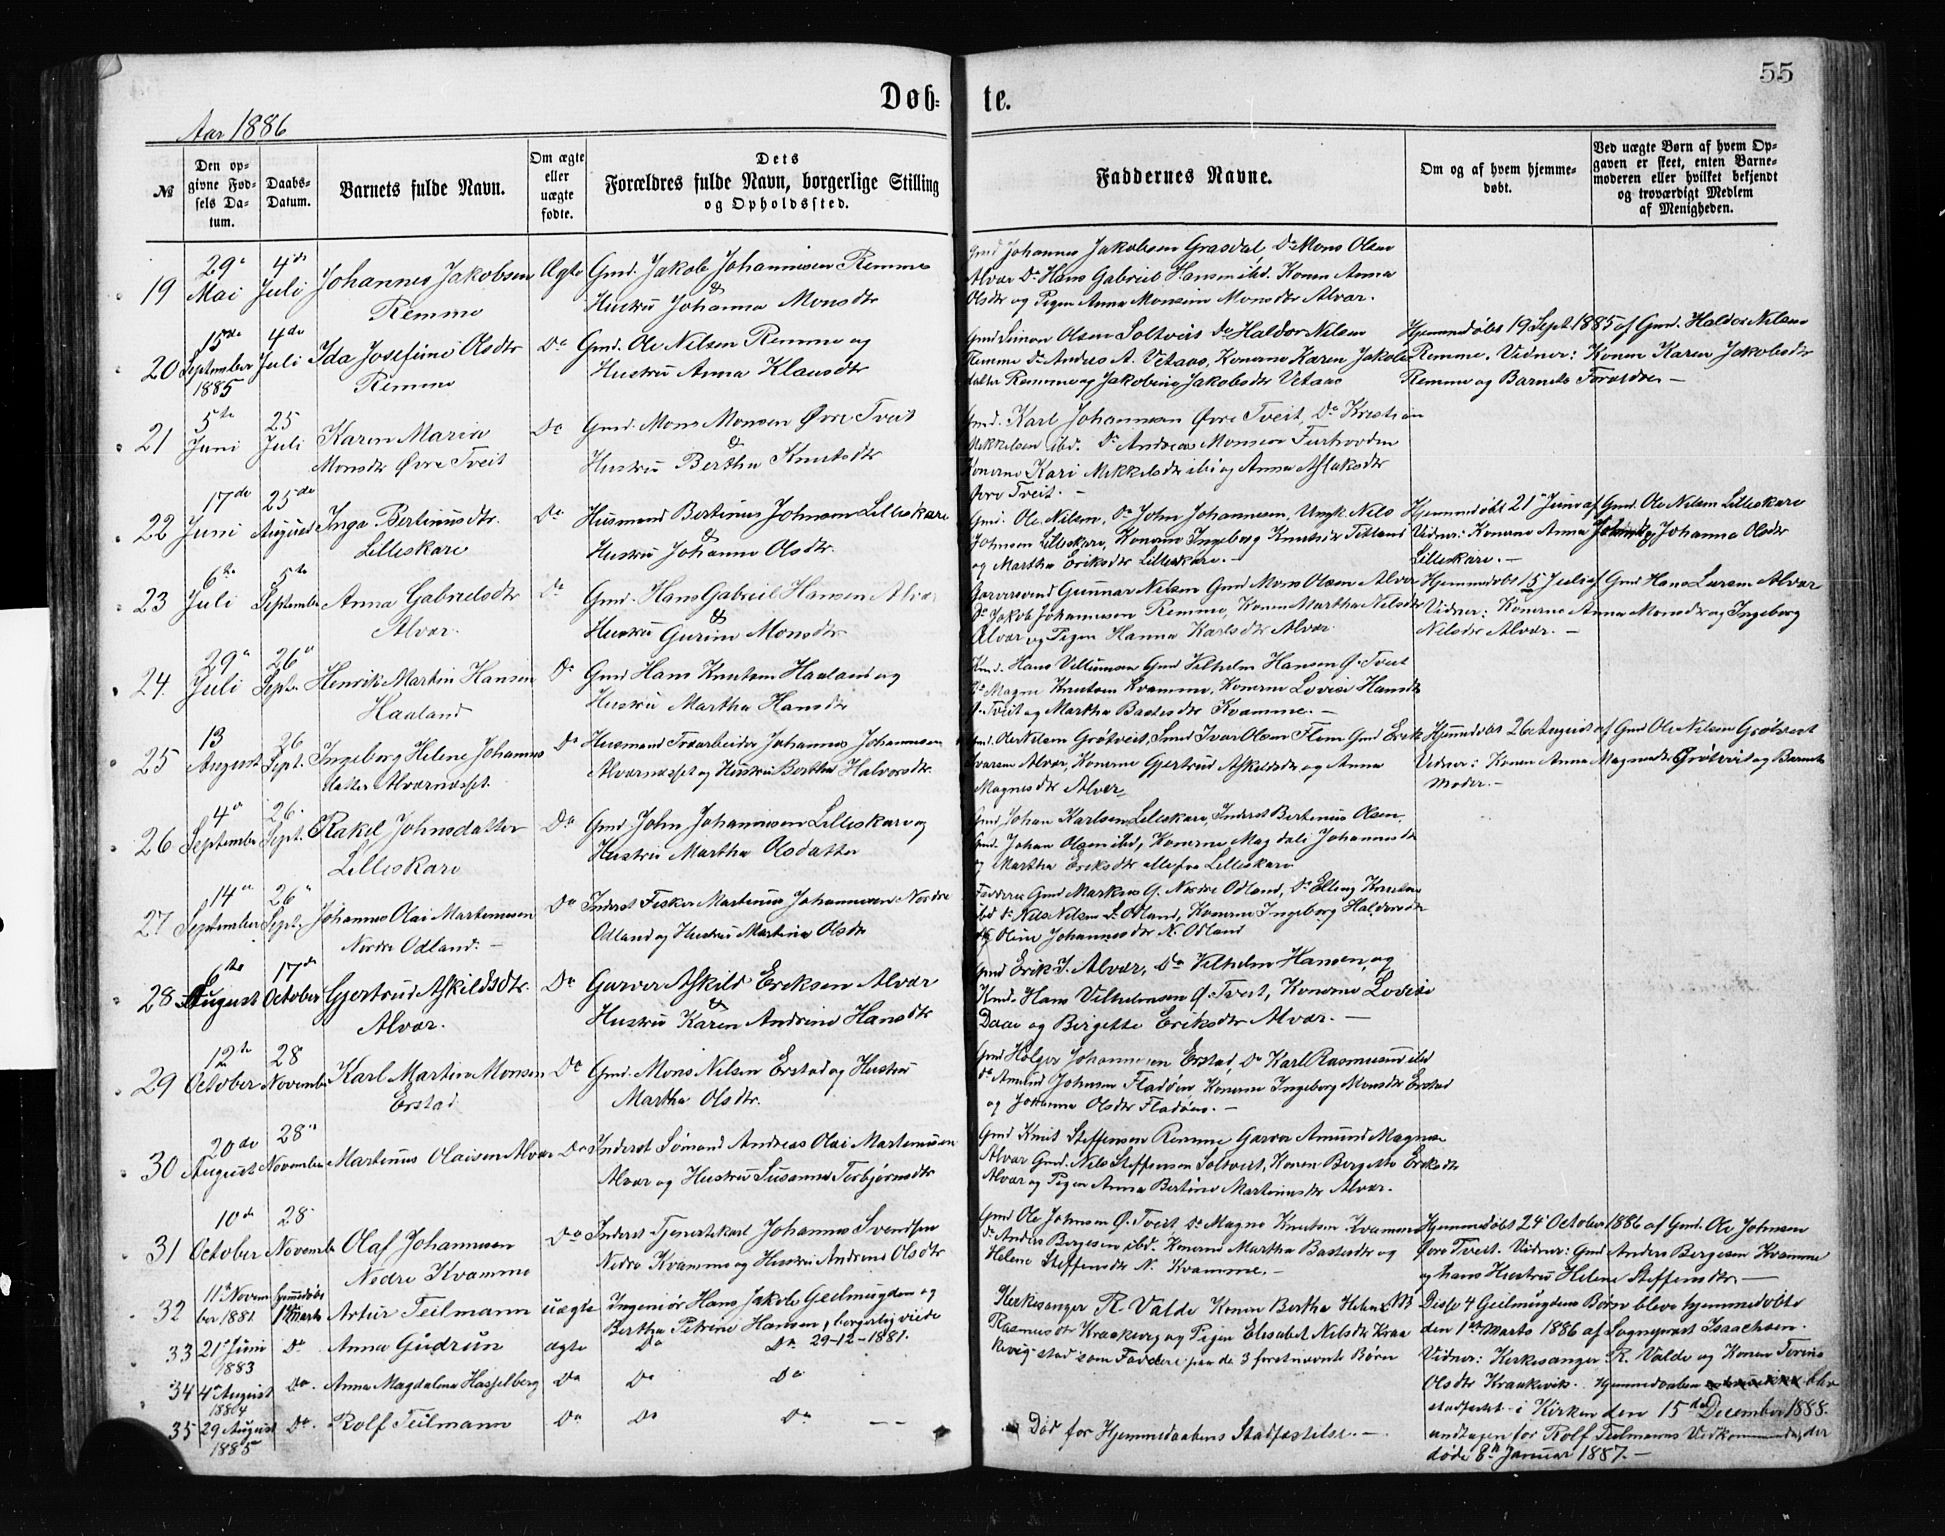 55
Døb-
te.
Aar 1886
№
Den op-
givne Fød-
sels Da-
tum.
Daabs-
Datum.
Barnets fulde Navn.
Om ægte
eller
uægte
fødte.
Dets
Forældres fulde Navn, borgerlige Stilling
og Opholdssted.
Faddernes Navne.
Om og af hvem hjemme-
døbt.
Ved uægte Børn af hvem Op-
gaven er skeet, enten Barne-
moderen eller hvilket bekjendt
og troværdigt Medlem
af Menigheden.
19 29de Mai 4de Juli Johannes Jakobsen Ægte Gmd. Jakob Johannesen Remme
Remme & Hustru Johanna Monsdtr
Gmd Johannes Jakobsen Grasdal, Do Mons Olsen
Alvær Do Hans Gabriel Hansen ibd. Konen Anna
Olsdtr og Pigen Anna Monsine Monsdtr Alvær.
20 15de September 1885 4de Juli Ida Josefine Olsdtr Do Gmd. Ole Nilsen Remme og
Remme Hustru Anna Klausdtr
Gmd Simon Olsen Soltveit Do Haldor Nilsen
Remme Do Andres A. Vetaas, Konerne Karen Jakobs
datter Remme og Jakobine Jakobsdtr Vetaas
Hjemmedøbt 19 Sept 1885 af Gmd. Haldor Nilsen
Remme. Vidner: Konen Karen Jakobsdtr
Remme og Barnets Forældre. —
21 5te Juni 25 Juli Karen Maria Do Gmd. Mons Monsen Øvre Tveit
Monsdtr Øvre Tveit & Hustru Bertha Knutsdtr
Gmd. Karl Johannesen Øvre Tveit, Do Kristian
Mikkelsen ibd. Do Andreas Monsen Furhovden
Konerne Kari Mikkelsdtr ibd og Anna Aslaksdtr
Øvre Tveit. —
22 17de Juni 25de August Inga Bertinusdtr. Do Husmand Bertinus Johnsen Lilleskare
Lilleskare & Hustru Johanne Olsdtr.
Gmd. Ole Nilsen, Do John Johannesen, Ungk. Nils
Johnsen Lilleskare, Konerne Ingeborg Knutsdtr Titland
og Martha Eriksdtr Lilleskare. —
Hjemmedøbt 21 Juni af Gmd. Ole Nilsen Lilleskare
Vidner: Konerne Anna og Johanna Olsdtr
Lilleskare. —
23 6te Juli 5te September Anna Gabrielsdtr Do Gmd. Hans Gabriel Hansen Alvær
Alvær. & Hustru Gurine Monsdtr
Garversvend Gunnar Nilsen Gmd Mons Olsen Alvær
Do Jakob Johannesen Remme, Konen Martha Nilsdtr
Alvær og Pigen Hanna Karlsdtr Alvær
Hjemmedøbt 15 Juli af Gmd Hans Larsen Alvær
Vidner: Konerne Anna Monsdtr og Ingeborg
Nilsdtr Alvær. —
24. 29de Juli 26de Septbr Henrik Martin Hansen Do Gmd Hans Knutsen Haaland og
Haaland Hustru Martha Hansdtr
Kmd. Hans Villumsen Gmd Vilhelm Hansen Ø. Tveit
Do Magne Knutsen Kvamme, Konerne Lovise Hansdtr
Ø. Tveit og Martha Bastesdtr Kvamme. —
25 13 August 26 Sept. Ingeborg Helene Johannes Do Husmand Træarbeider Johannes Johannesen
datter Alværnæsset. Alværnæsset og Hustru Bertha Halvorsdtr.
Gmd. Ole Nilsen Grøtveit, Smed Ivar Olsen Flem Gmd Erik
Ivarsen Alvær, Konerne Gjertrud Askildsdtr og Anna
Magnesdtr Alvær
Hjemmedøbt 26 August af Gmd Ole Nilsen Grøtveit
Vidner: Konen Anna Magnesdtr Grøtveit og Barnets
Moder. —
26 4de September 26. Sept. Rakel Johnsdatter Do Gmd John Johannesen Lilleskare og
Lilleskare Hustru Martha Olsdatter
Gmd Johan Karlsen Lilleskare, Inderst Bertinus Olsen,
Gmd. Johan Olsen ibd, Konerne Magdali Johannesdtr
og Martha Eriksdtr alle fra Lilleskare
27 14de September 26de Sept, Johannes Olai Martinusen Do Inderst Fisker Martinus Johannesen Nordre
Nordre Odland. — Odland og Hustru Martina Olsdtr
Faddere Gmd Markus O. Nordre Odland, Do Elling Knutsen
ibd Do Nils Nilsen S. Odland, Konerne Ingeborg Haldorsdtr
og Oline Johannesdtr N. Odland
28 6te August 17de October Gjertrud Askildsdtr. Do Garver Askild Eriksen Alvær
Alvær. & Hustru Karen Andrine Hansdtr
Gmd Erik I. Alvær, Do Vilhelm Hansen, og
Kmd. Hans Vilhelmsen Ø. Tveit, Konerne Lovise
Daae og Birgitte Eriksdtr Alvær. —
29 12te October 28 November Karl Martin Monsen Do Gmd. Mons Nilsen Erstad og Hustru
Erstad Martha Olsdtr.
Gmd Holger Johannesen Erstad, Do Karl Rasmussen ibd
Do Amund Johnsen Fladøen Konerne Ingeborg Monsdtr Erstad
og Johanna Olsdtr Fladøen. —
30 20de August 28de November Martinus Olaisen Alvær Do Inderst Sømand Andreas Olai Martinusen
Alvær og Hustru Susanna Torbjørnsdtr
Gmd Knut Steffensen Remme Garver Amund Magnesen
Alvær Gmd. Nils Steffensen Soltveit, Konen Bergitte Eriksdtr
Alvær og Pigen Anna Bertine Martinusdtr Alvær.
31 10de October 28 November Olaf Johannesen Do Inderst Tjenestekarl Johannes Svendsen
Nedre Kvamme Nedre Kvamme og Hustru Andrine Olsdtr
Gmd Ole Johnsen Ø. Tveit Do Magne Knutsen Kvamme
Do Anders Børgesen ibd. Konerne Martha Bastesdtr og
Helene Steffensdtr N. Kvamme. —
Hjemmedøbt 24 October 1886 af Gmd. Ole Johnsen
Øvre Tveit. Vidner: Gmd Anders Børgesen Kvamme
og hans Hustru Helene Steffensdtr. —
32 11te Novem ber 1881 hjemmedøbt 1ste Marts Artur Teilmann uægte Ingeniør Hans Jakob Geelmuyden og
Bertha Petrine Hansen, borgerlig viede
Kirkesanger R. Valde Konen Bertha Helene
Rasmusdtr og Pigen Elisabet Nilsdtr
stad som Faddere paa de 3 førstnævnte Børn
33 21de Juni 1883 Do Anna Gudrun ægte Do Do 29-12-1881.
34 4de August 1884 Do. Anna Magdalena Hasselberg Do Do Do
35 29 August 1885 Do. Rolf Teilmann Do Do Do — —
Død før Hjemmedaabens Stadfæstelse. —
Disse 4 Geelmuydens Børn bleve hjemmedøbte
den 1ste Marts 1886 af Sogneprest Isaachsen.
Vidner: Kirkesanger R. Valde og Konen
Olsdtr Kraakevik. Hjemmedaaben blev
stadfæstet i Kirken den 15de December 1888.
undtagen for Rolf Teilmanns Vedkommende, der
døde 8de Januar 1887. —